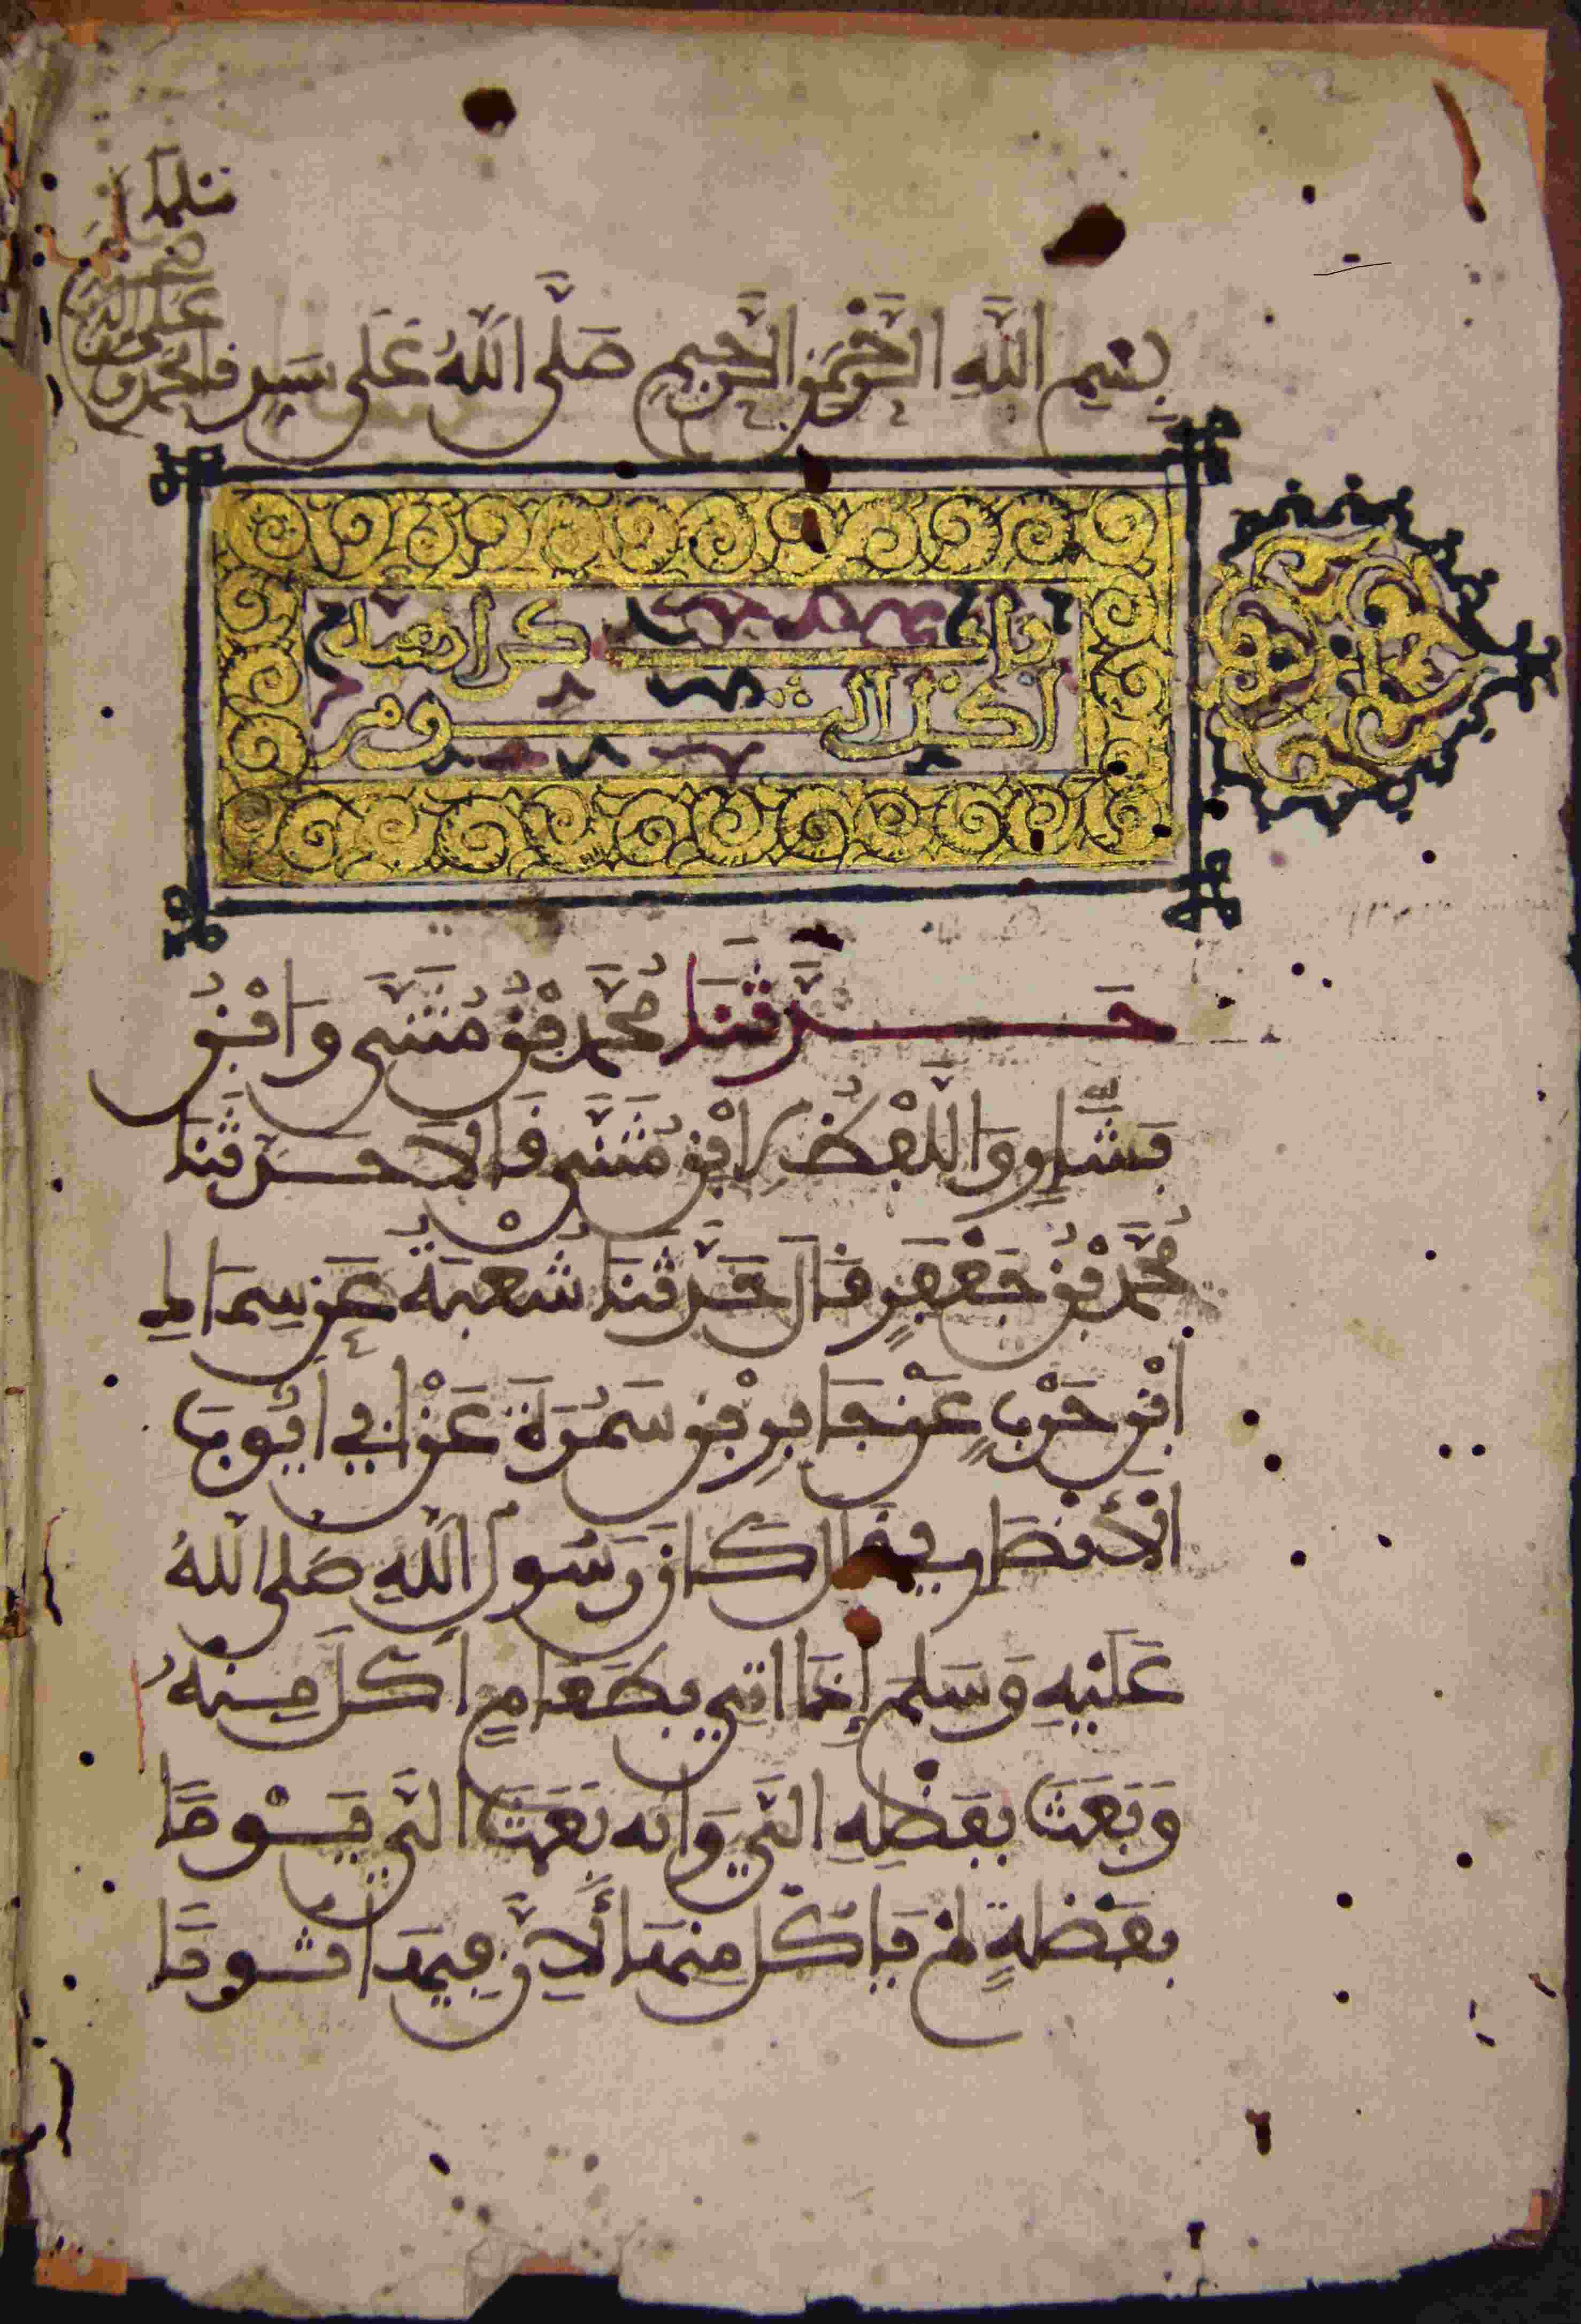 بِسْمِ اللَّهِ الرَّحْمَنِ الرَّحِيمِ صَلَّى اللَّهُ عَلَى سَيِّدِنَا مُحَمَّدٍ وَ
عَلَى آلِهِ
تسليما
باب كراهية
أكل الثوم
حَدَّثَنَا مُحَمَّدُ بْنُ مُثَنَّى وَابْنُ
بَشَّارٍ وَاللَّفْظُ لِابْنِ مُثَنَّى قَالَا حَدَّثَنَا
مُحَمَّدُ بْنُ جَعْفَرٍ قَالَ حَدَّثَنَا شُعْبَةُ عَنْ سِمَاكِ
ابْنِ حَرْبٍ عَنْ جَابِرِ بْنِ سَمُرَةَ عَنْ أَبِي أَيُّوبَ
الْأَنْصَارِيِّ قَالَ كَانَ رَسُولُ اللَّهِ صَلَّى اللَّهُ
عَلَيْهِ وَسَلَّمَ إِذَا أُتِيَ بِطَعَامٍ أَكَلَ مِنْهُ
وَبَعَثَ بِفَضْلِهِ إِلَيَّ وَأَنَّهُ بَعَثَ إِلَيَّ يَوْمًا
بِفَضْلَةٍ لَمْ يَأْكُلْ مِنْهَا لِأَنَّ فِيهَا ثُومًا